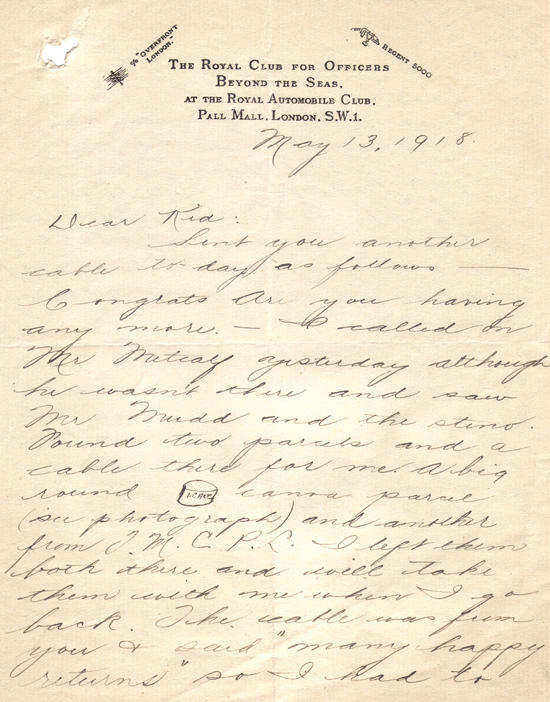 % "OVERFRONT
LONDON."
REGENT 5000
THE ROYAL CLUB FOR OFFICERS
BEYOND THE SEAS,
AT THE ROYAL AUTOMOBILE CLUB,
PALL MALL, LONDON, S.W.1.
May 13, 1918
Dear Kid:
Sent you another
cable to day as follows —
Congrats Are you having
any more. — I called on
Mr Metcalf yesterday although
he wasn't there and saw
Mr Mudd and the steno.
Found two parcels and a
cable there for me. A big
round canva parcel
(see photograph) and another
from J. M. C. P. L. I left them
both there and will take
them with me when I go
back. The cable was from
you & said "many happy
returns" so I had to